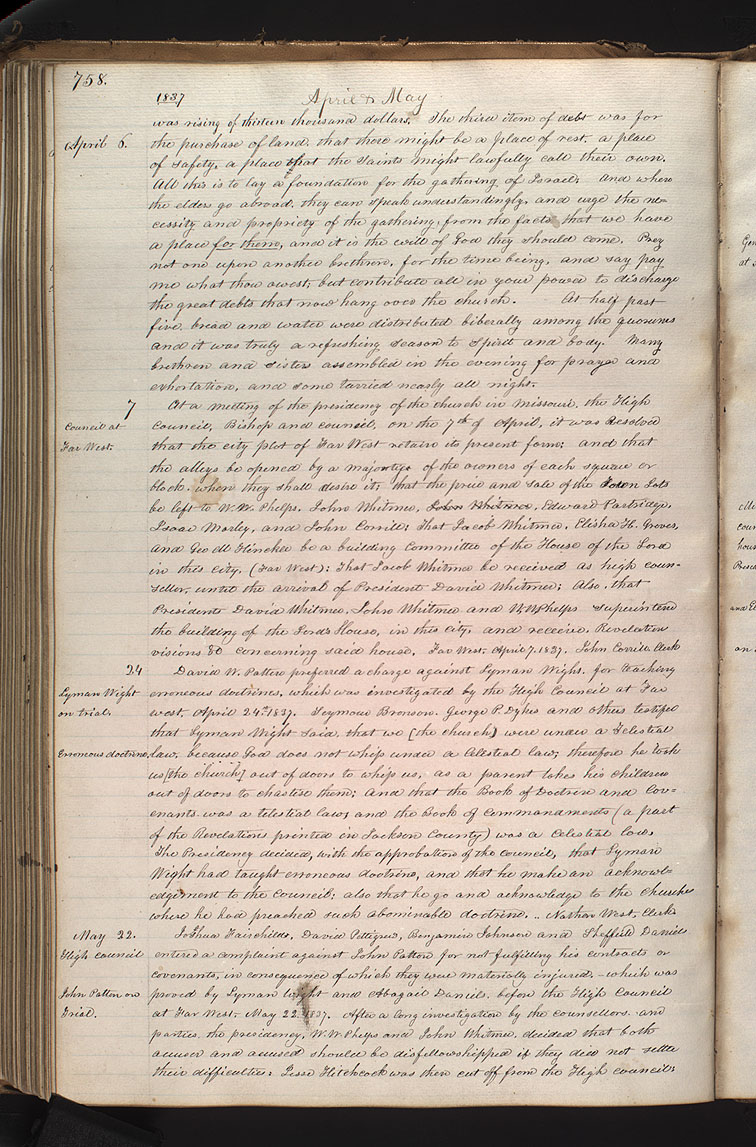 758.
1837 April & May
was rising of thirteen thousand dollars. The third item of debt was for
April 6. the purchase of land, that there might be a place of rest, a place
of safety, a place that the saints might lawfully call their own.
All this is to lay a foundation for the gathering of Israel, and when
the elders go abroad, they can speak understandingly, and urge the ne=
cessity and propriety of the gathering, from the fact that we have
a place for them, and it is the will of God they should come. Prey
not one upon another brethren, for the time being, and say pay
me what thou owest; but contribute all in your power to discharge
the great debts that now hang over the church. At half past
five, bread and water were distributed liberally among the quorums
and it was truly a refreshing season to spirit and body. Many
brethren and sisters assembled in the evening for prayer and
exhortation, and some tarried nearly all night.
7 At a meeting of the presidency of the church in Missouri, the High
Council at council, Bishop and council, on the 7th of April, it was Resolved
Far West. that the city plot of Far West retain its present form; and that
the alleys be opened by a majority of the owners of each square or
block, when they shall desire it; that the price and sale of the Town Lots
be left to W. W. Phelps, John Whitmer, John Whitmer, Edward Partridge,
Isaac Morley, and John Corrill; That Jacob Whitmer, Elisha H. Groves,
and Geo M. Hinckle be a building committee of the House of the Lord
in this city, (Far West): That Jacob Whitmer be received as high coun=
sellor, until the arrival of President David Whitmer; Also, that
Presidents David Whitmer, John Whitmer and W W Phelps superintend
the building of the Lord's House, in this city, and receive, Revelation
visions &c concerning said house. Far West. April 7. 1837. John Corrill, Clerk
24 David W. Patten preferred a charge against Lyman Wight, for teaching
Lyman Wight erroneous doctrines, which was investigated by the High Council at Far
on trial. west, April 24th 1837. Seymour Bronson, George P. Dykes and others testified
that Lyman Wight said, that we [the church] were under a Telestial
Erroneous doctrine. law, because God does not whip under a Celestial law; therefore he took
us [the church] out of doors to whip us, as a parent takes his children
out of doors to chastise them; And that the Book of Doctrine and Cov=
enants was a telestial law; and the Book of Commandments (a part
of the Revelations printed in Jackson County) was a Celestial law,
The Presidency decided, with the approbation of the council, that Lyman
Wight had taught erroneous doctrine, and that he make an acknowl=
edgement to the Council; also that he go and acknowledge to the churches
where he had preached such abominable doctrine. .. Nathan West, Clerk
May 22. Joshua Fairchilds, David Pettigrew, Benjamin Johnson and Sheffield Daniels
High council entered a complaint against John Patten for not fulfilling his contracts or
covenants, in consequence of which they were materially injured, - which was
John Patten on proved by Lyman Wight and Abagail Daniels before the High Council
Trial. at Far West. May 22. 1837. After a long investigation by the counsellors, and
parties, the presidency, W. W. Phelps and John Whitmer, decided that both
accuser and accused should be disfellowshipped if they did not settle
their difficulties: Jesse Hitchcock was then cut off from the High council;